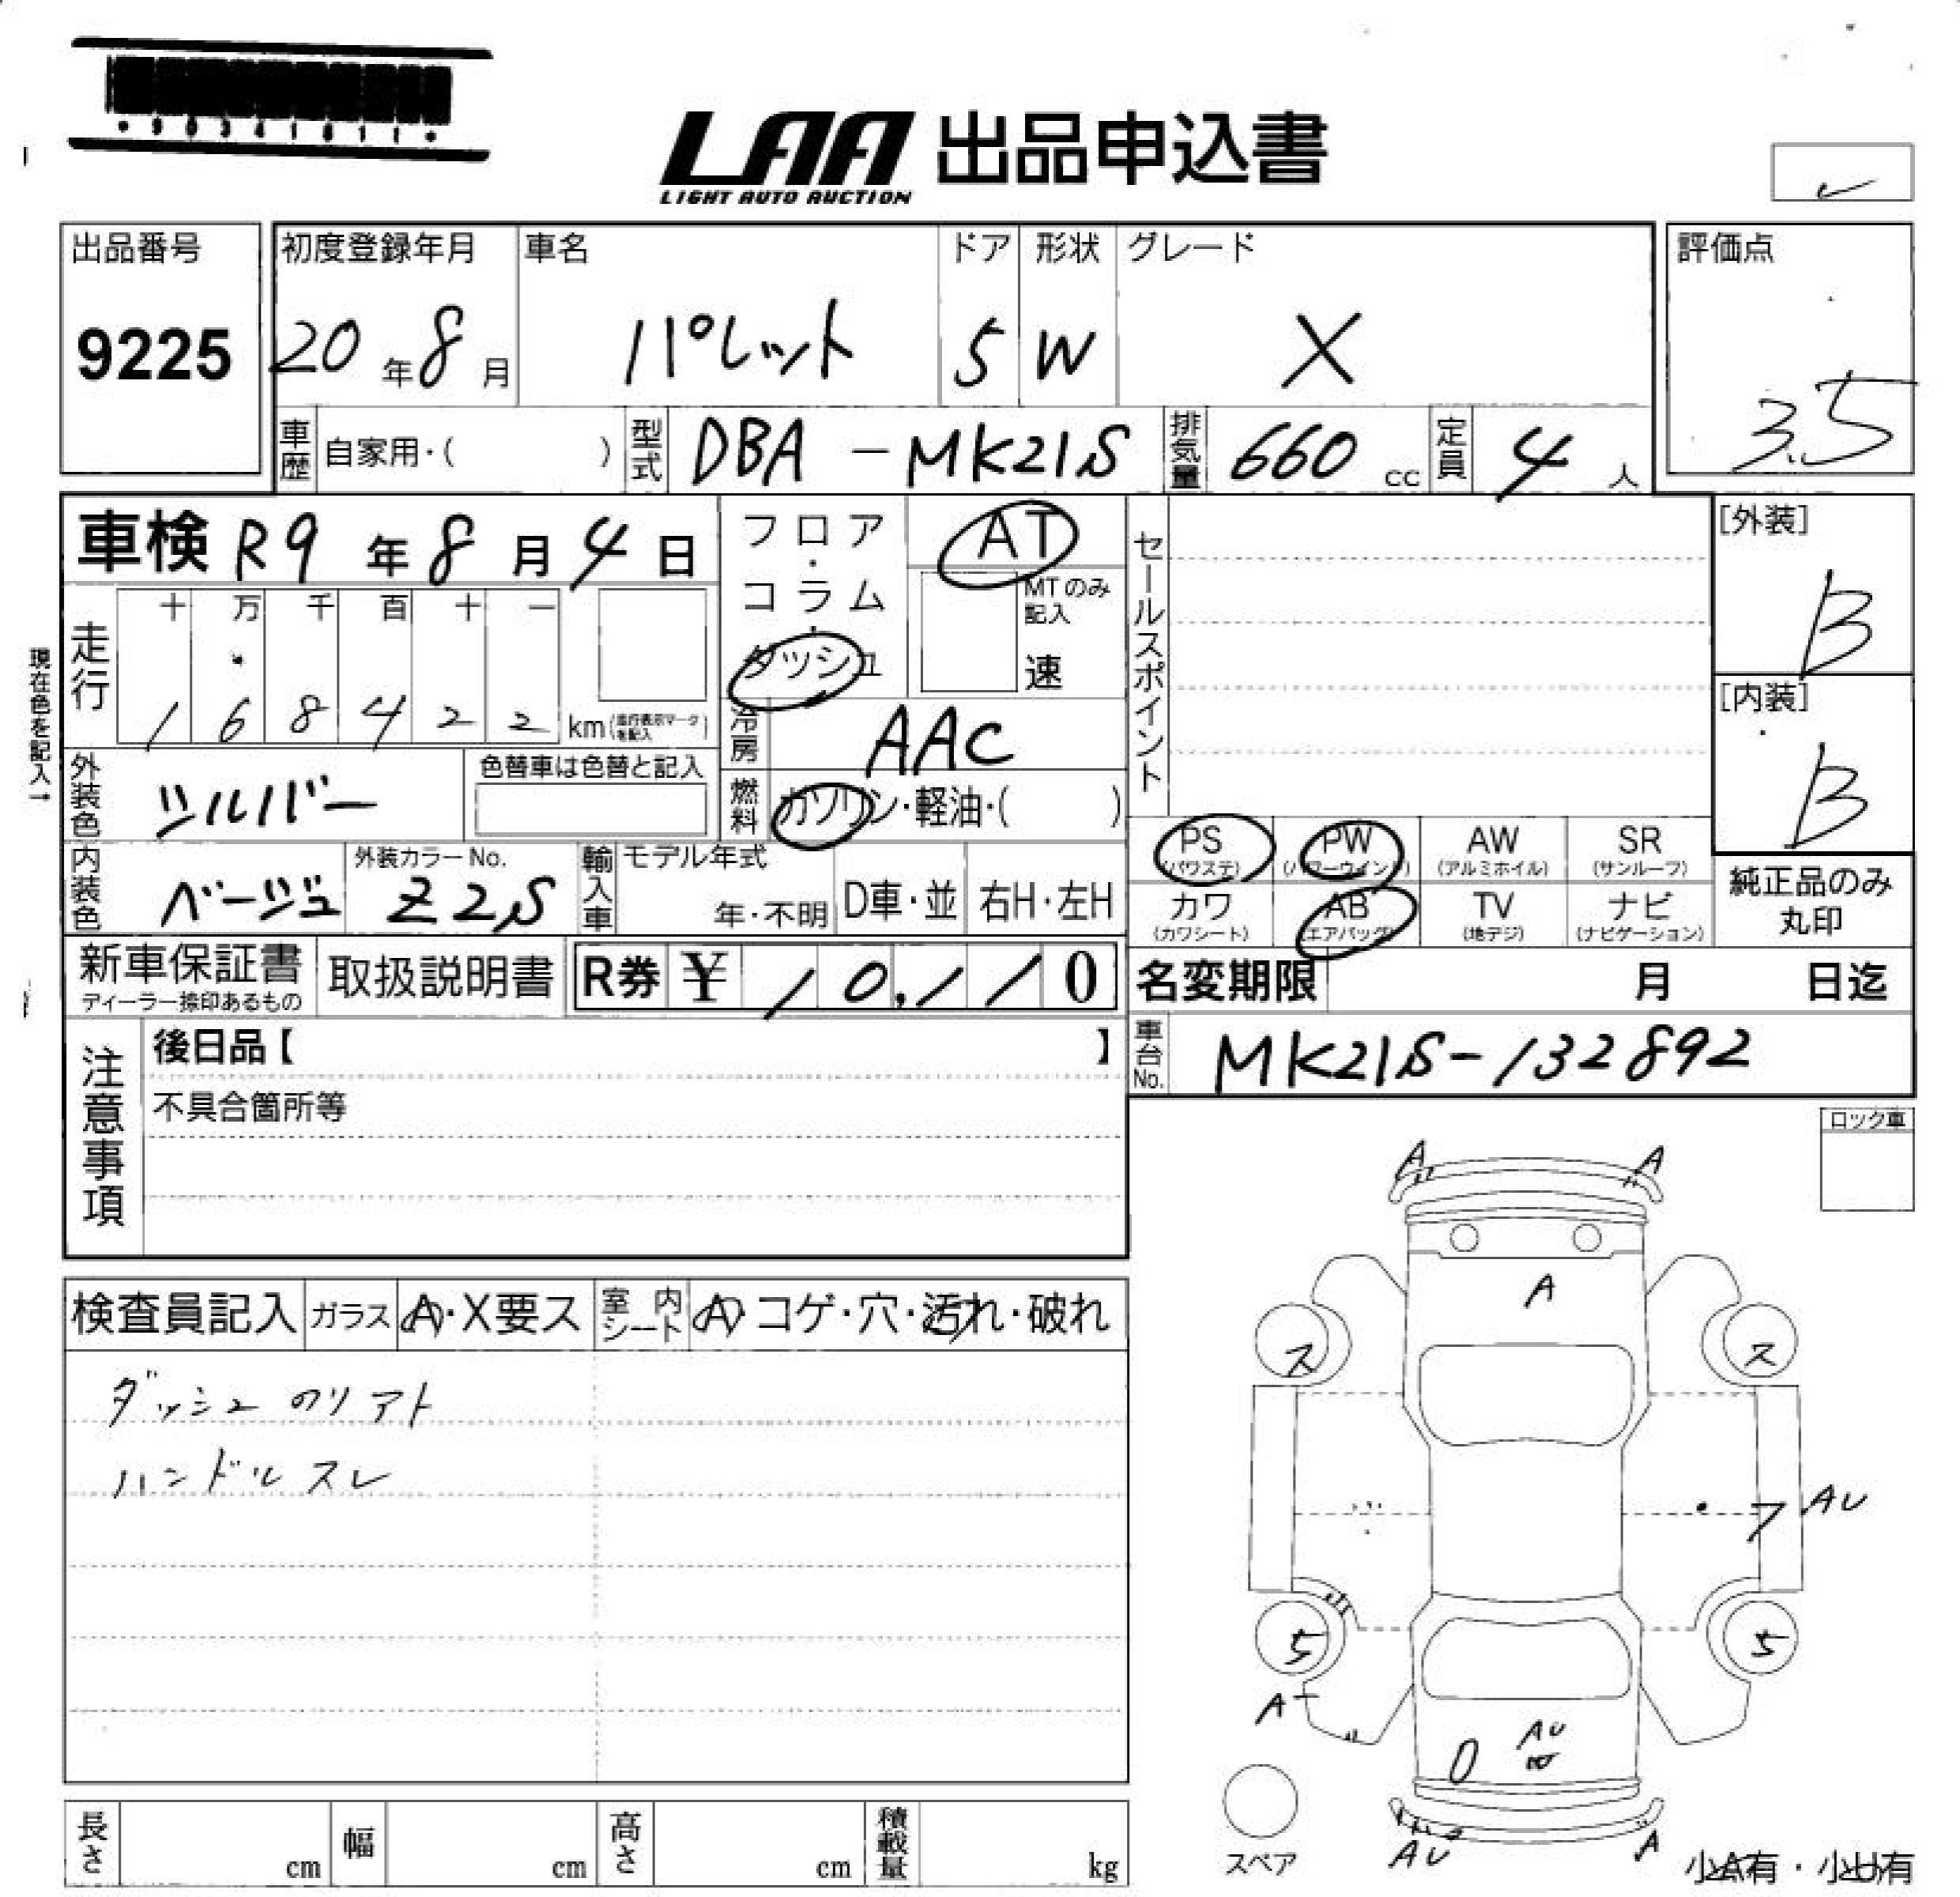 LAA 出品申込書
LIGHT AUTO AUCTION
出品番号 初度登録年月 車名 ドア 形状 グレード 評価点
9225 20年8月 パレット 5 W X 3.5
車歴 自家用・( ) 型式 DBA-MK21S 排気量 660 cc 定員 4人
車検 R9年8月4日
フロア・コラム・ダッシュ AT
MTのみ記入
速
セールスポイント
[外装]
B
[内装]
B
現在色を記入→
走行 十 万 千 百 十 一
1 6 8 4 2 2 km(走行表示マークを記入)
冷房 AAC
外装色 シルバー 色替車は色替と記入
燃料 ガソリン・軽油・( )
内装色 ベージュ 外装カラーNo. Z2S
輸入車 モデル年式 年・不明 D車・並 右H・左H
PS (パワステ) PW (パワーウインド) AW (アルミホイル) SR (サンルーフ)
カワ (カワシート) AB (エアバッグ) TV (地デジ) ナビ (ナビゲーション)
純正品のみ
丸印
新車保証書 ディーラー捺印あるもの 取扱説明書 R券 ¥ 10,110
名変期限 月 日迄
注意事項
後日品【 】
不具合箇所等
車台No. MK21S-132892
ロック車
検査員記入 ガラス A・X要ス 室内シート A・コゲ・穴・汚れ・破れ
ダッシュ のリアト
ハンドルスレ
A A
A
ス ス
AU
5 5
A
AU
AU A
スペア
小A有・小U有
長さ cm 幅 cm 高さ cm 積載量 kg